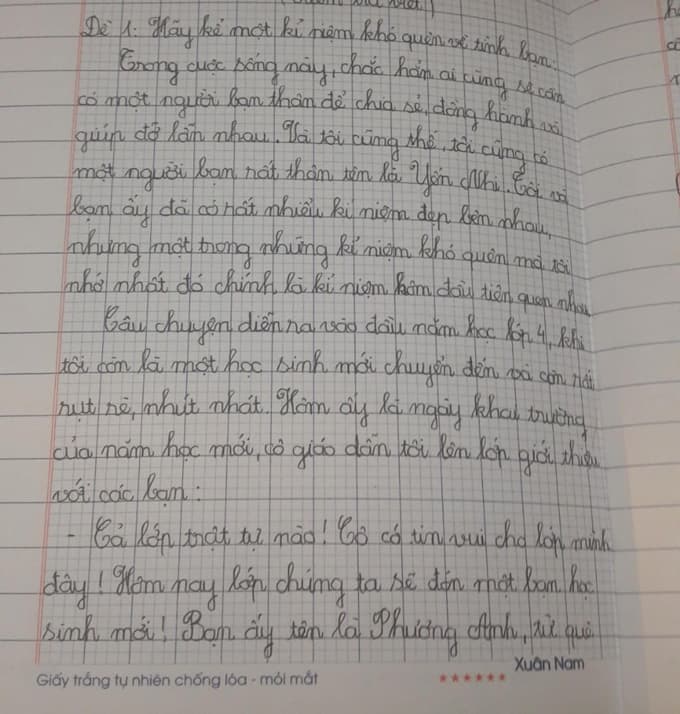 Đề 1: Hãy kể một kỉ niệm khó quên về tình bạn.
Trong cuộc sống này, chắc hẳn ai cũng sẽ cần
có một người bạn thân để chia sẻ, đồng hành và
giúp đỡ lẫn nhau. Và tôi cũng thế, tôi cũng có
một người bạn rất thân tên là Yến Nhi. Tôi và
bạn ấy đã có rất nhiều kỉ niệm đẹp bên nhau,
nhưng một trong những kỉ niệm khó quên mà tôi
nhớ nhất đó chính là kỉ niệm hôm đầu tiên quen nhau
Câu chuyện diễn ra vào đầu năm học lớp 4, khi
tôi còn là một học sinh mới chuyển đến và còn rất
rụt rè, nhút nhát. Hôm ấy là ngày khai trường
của năm học mới, cô giáo dẫn tôi lên lớp giới thiệu
với các bạn:
- Cả lớp trật tự nào! Cô có tin vui cho lớp mình
đây! Hôm nay lớp chúng ta sẽ đón một bạn học
sinh mới! Bạn ấy tên là Phương Anh, từ quê
Giấy trắng tự nhiên chống lóa - mỏi mắt
Xuân Nam